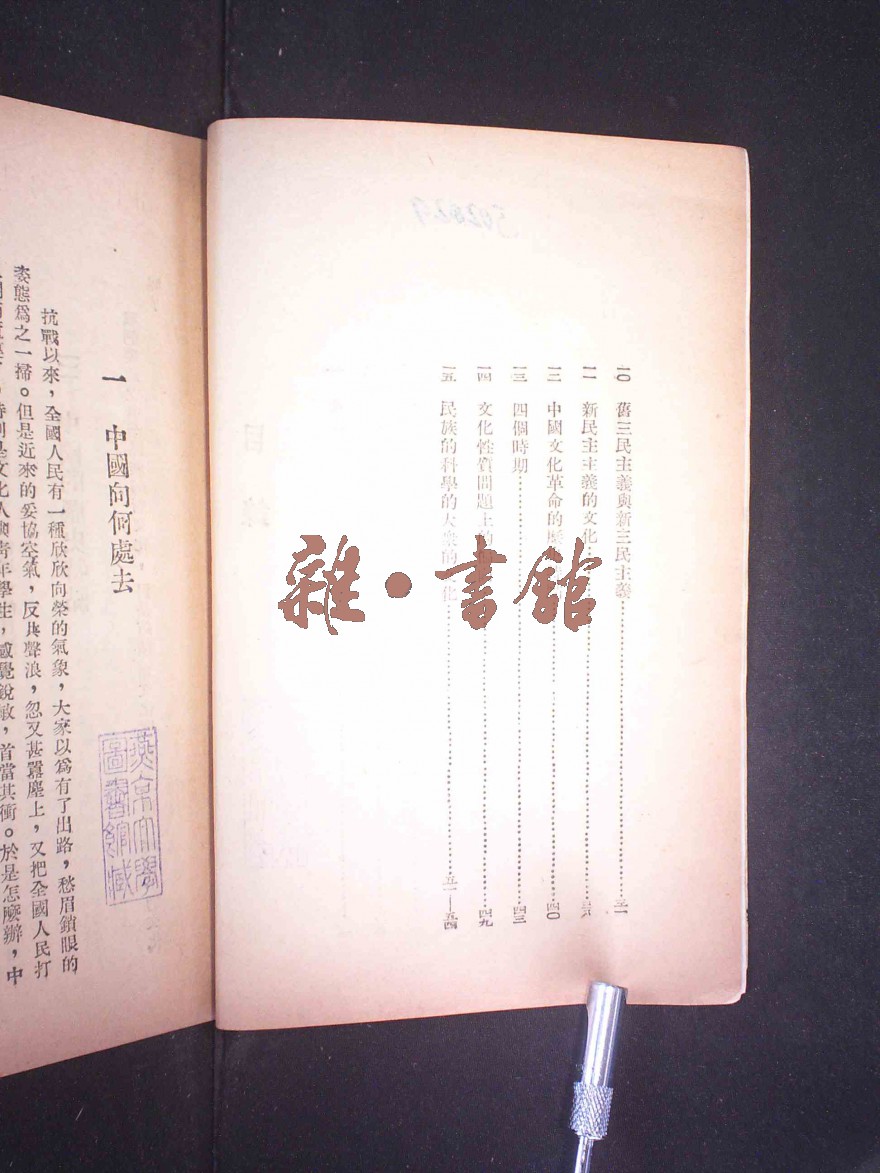 一〇 舊三民主義與新三民主義
一一 新民主主義的文化
一二 中國文化革命的 四〇
一三 四個時期 四三
一四 文化性質問題上的 四九
一五 民族的科學的大衆的 化 五一—五四
雜·書館
一 中國向何處去
抗戰以來,全國人民有一種欣欣向榮的氣象,大家以爲有了出路,愁眉鎖眼的
姿態爲之一掃。但是近來的妥協空氣,反共聲浪,忽又甚囂塵上,又把全國人民打
特別是文化人與青年學生,感覺銳敏,首當其衝。於是怎麼辦,中
燕京大學
圖書館藏